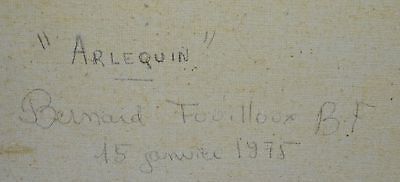 " ARLEQUIN "
Bernard Fouilloux B.F
15 janvier 1975